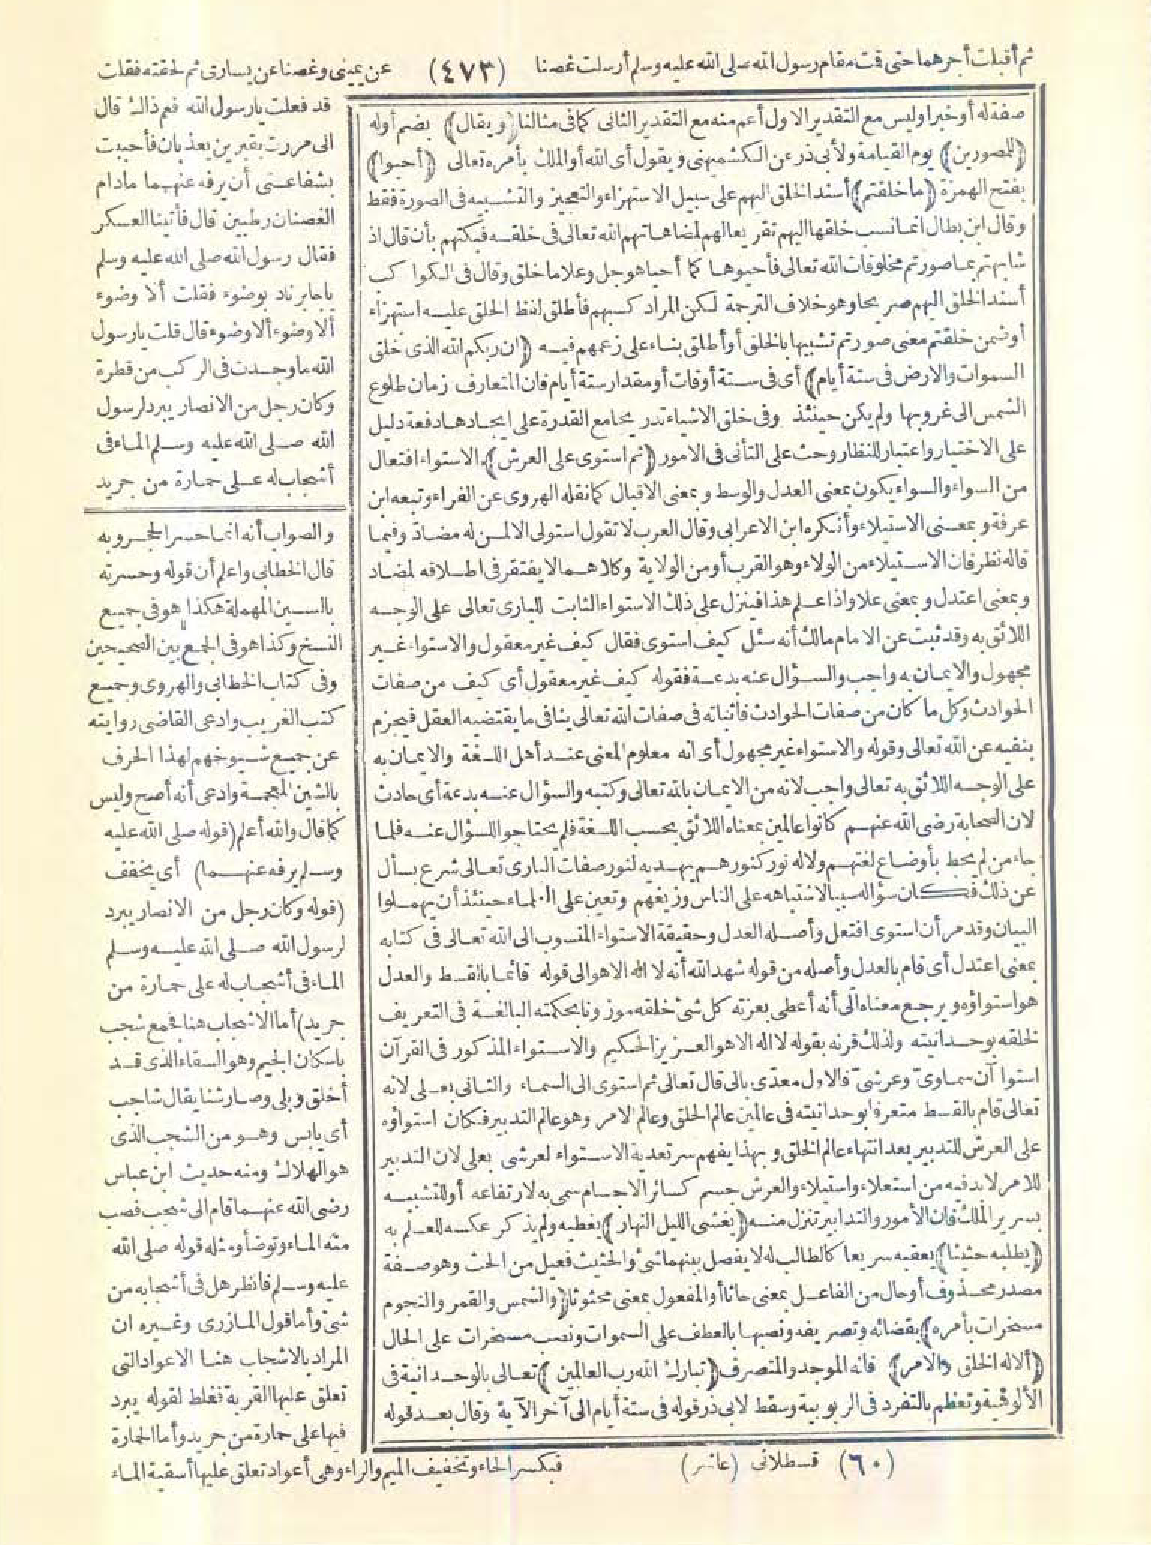 ثم أقبلت أجرهما حتى قمت مقام رسول الله صلى الله عليه وسلم أرسلت غصنا (٤٧٣) عن يميني وغصنا عن يساري ثم لحقته فقلت
صفة له أو خبرا وليس مع التقدير الاول أعم منه مع التقدير الثاني كما في مثالنا (ويقال) بضم أوله
(للمصورين) يوم القيامة ولأبي ذر عن الكشميهني ويقول أي الله أو الملك بأمره تعالى (أحيوا)
بفتح الهمزة (ما خلقتم) أسند الخلق اليهم على سبيل الاستهزاء والتعجيز والتشبيه في الصورة فقط
وقال ابن بطال انما نسب خلقها اليهم تقريعا لهم لمضاهاتهم الله تعالى في خلقه فبكتهم بأن قال اذ
شابهتم بما صورتم مخلوقات الله تعالى فأحيوها كما أحيا هو جل وعلا ما خلق وقال في الكواكب
أسند الخلق اليهم صريحا وهو خلاف الترجمة لكن المراد كسبهم فأطلق لفظ الخلق عليه استهزاء
أو ضمن خلقتم معنى صورتم تشبيها بالخلق أو أطلق بناء على زعمهم فيه (ان ربكم الله الذي خلق
السموات والارض في ستة أيام) أي في ستة أوقات أو مقدار ستة أيام فان المتعارف زمان طلوع
الشمس الى غروبها ولم يكن حينئذ وفي خلق الاشياء تدريجا مع القدرة على ايجادها دفعة دليل
على الاختيار واعتبار للنظار وحث على التأني في الامور (ثم استوى على العرش) الاستواء افتعال
من السواء والسواء يكون بمعنى العدل والوسط وبمعنى الاقبال كما نقله الهروي عن الفراء وتبعه ابن
عرفة وبمعنى الاستيلاء وأنكره ابن الاعرابي وقال العرب لا تقول استولى الا لمن له مضاد وفيما
قاله نظر فان الاستيلاء من الولاء وهو القرب أو من الولاية وكلاهما لا يفتقر في اطلاقه لمضاد
وبمعنى اعتدل وبمعنى علا واذا علم هذا فينزل على ذلك الاستواء الثابت للباري تعالى على الوجه
اللائق به وقد ثبت عن الامام مالك أنه سئل كيف استوى فقال كيف غير معقول والاستواء غير
مجهول والايمان به واجب والسؤال عنه بدعة فقوله كيف غير معقول أي كيف من صفات
الحوادث وكل ما كان من صفات الحوادث فأثباته في صفات الله تعالى ينافي ما يقتضيه العقل فيجزم
بنفيه عن الله تعالى وقوله والاستواء غير مجهول أي انه معلوم المعنى عند أهل اللغة والايمان به
على الوجه اللائق به تعالى واجب لانه من الايمان بالله تعالى وكتبه والسؤال عنه بدعة أي حادث
لان الصحابة رضي الله عنهم كانوا عالمين بمعناه اللائق بحسب اللغة فلم يحتاجوا للسؤال عنه فلما
جاء من لم يحط بأوضاع لغتهم ولا له نور كنورهم يهديه لنور صفات الباري تعالى شرع يسأل
عن ذلك فكان سؤاله سببا لاشتباهه على الناس وزيغهم وتعين على العلماء حينئذ أن يهملوا
البيان وقد مر أن استوى افتعل وأصله العدل وحقيقة الاستواء المنسوب الى الله تعالى في كتابه
بمعنى اعتدل أي قام بالعدل وأصله من قوله شهد الله أنه لا اله الا هو الى قوله قائما بالقسط والعدل
هو استواؤه ويرجع معناه الى أنه أعطى بعزته كل شئ خلقه موزونا بحكمته البالغة في التعريف
لخلقه بوحدانيته ولذلك قرنه بقوله لا اله الا هو العزيز الحكيم والاستواء المذكور في القرآن
استوا آن سماوي وعرشي فالاول معدى بالى قال تعالى ثم استوى الى السماء والثاني بعلى لانه
تعالى قام بالقسط متعرفا بوحدانيته في عالمين عالم الخلق وعالم الامر وهو عالم التدبير فكان استواؤه
على العرش للتدبير بعد انتهاء عالم الخلق وبهذا يفهم سر تعدية الاستواء لعرشي بعلى لان التدبير
للامر لا بد فيه من استعلاء واستيلاء والعرش جسم كسائر الاجسام سمي به لارتفاعه أو للتشبيه
بسرير الملك فان الأمور والتدابير تنزل منه (يغشي الليل النهار) يغطيه ولم يذكر عكسه للعلم به
(يطلبه حثيثا) يعقبه سريعا كالطالب له لا يفصل بينهما شئ والحثيث فعيل من الحث وهو صفة
مصدر محذوف أو حال من الفاعل بمعنى حاثا أو المفعول بمعنى محثوثا (والشمس والقمر والنجوم
مسخرات بأمره) بقضائه وتصريفه ونصبها بالعطف على السموات ونصب مسخرات على الحال
(ألا له الخلق والامر) فانه الموجد والمتصرف (تبارك الله رب العالمين) تعالى بالوحدانية في
الألوهية وتعظم بالتفرد في الربوبية وسقط لابي ذر قوله في ستة أيام الى آخر الآية وقال بعد قوله
قد فعلت يا رسول الله فعم ذاك قال
اني مررت بقبرين يعذبان فأحببت
بشفاعتي أن يرفه عنهما ما دام
الغصنان رطبين قال فأتينا العسكر
فقال رسول الله صلى الله عليه وسلم
يا جابر ناد بوضوء فقلت ألا وضوء
ألا وضوء ألا وضوء قال قلت يا رسول
الله ما وجدت في الركب من قطرة
وكان رجل من الانصار يبرد لرسول
الله صلى الله عليه وسلم الماء في
أشجاب له على حمارة من جريد
والصواب أنه انما حسر الحجر وبه
قال الخطابي واعلم أن قوله وحسرته
بالسين المهملة هكذا هو في جميع
النسخ وكذا هو في الجمع بين الصحيحين
وفي كتاب الخطابي والهروي وجميع
كتب الغريب وادعى القاضي روايته
عن جميع شيوخهم لهذا الحرف
بالشين المعجمة وادعى أنه أصح وليس
كما قال والله أعلم (قوله صلى الله عليه
وسلم يرفه عنهما) أي يخفف
(قوله وكان رجل من الانصار يبرد
لرسول الله صلى الله عليه وسلم
الماء في أشجاب له على حمارة من
جريد) أما الاشجاب هنا فجمع شجب
باسكان الجيم وهو السقاء الذي قد
أخلق وبلي وصار شنا يقال شاجب
أي يابس وهو من الشجب الذي
هو الهلاك ومنه حديث ابن عباس
رضي الله عنهما قام الى شجب فصب
منه الماء وتوضأ ومثله قوله صلى الله
عليه وسلم فانظر هل في أشجابه من
شئ وأما قول المازري وغيره ان
المراد بالاشجاب هنا الاعواد التي
تعلق عليها القربة فغلط لقوله يبرد
فيها على حمارة من جريد وأما الحمارة
(٦٠) قسطلاني (عاشر) فبكسر الحاء وتخفيف الميم والراء وهي أعواد تعلق عليها أسقية الماء